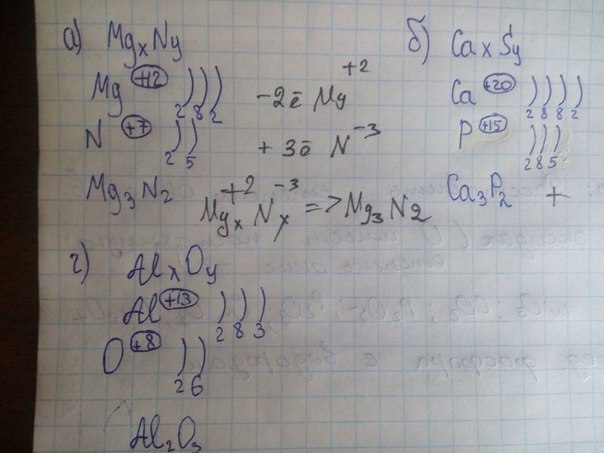 а) MgxNy
Mg +12 ) ) ) 2 8 2 -2ē Mg+2
N +7 ) ) 2 5 +3ē N-3
Mg3N2 Mgx+2 Ny-3 => Mg3N2
б) CaxSy
Ca +20 ) ) ) ) 2 8 8 2
P +15 ) ) ) 2 8 5
Ca3P2 +
г) AlxOy
Al +13 ) ) ) 2 8 3
O +8 ) ) 2 6
Al2O3